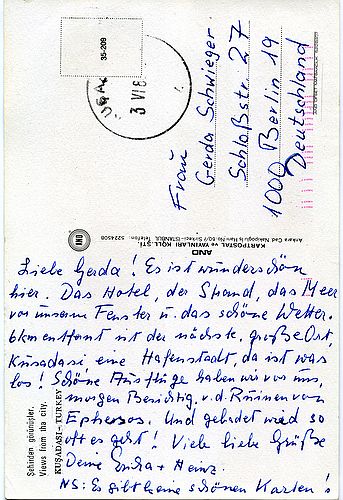 35-209
3 VI 8
Frau
Gerda Schwieger
Schloßstr. 27
1000 Berlin 19
Deutschland
AND
KARTPOSTAL ve YAYINLARI KOLL. ŞTİ.
Ankara Cad. No:60/7 Sirkeci-İSTANBUL Telefon: 5224508
AND
Liebe Gerda! Es ist wunderschön
hier. Das Hotel, der Strand, das Meer
vor unserem Fenster u. das schöne Wetter.
6km entfernt ist der nächste, große Ort,
Kusadasi eine Hafenstadt, da ist was
los! Schöne Ausflüge haben wir vor uns,
morgen Besichtig. v. d. Ruinen von
Ephesos. Und gebadet wird so
oft es geht! Viele liebe Grüße
Deine + Heinz.
NS: Es gibt keine schönen Karten!
Şehirden görünüşler.
Views from the city.
KUŞADASI - TURKEY